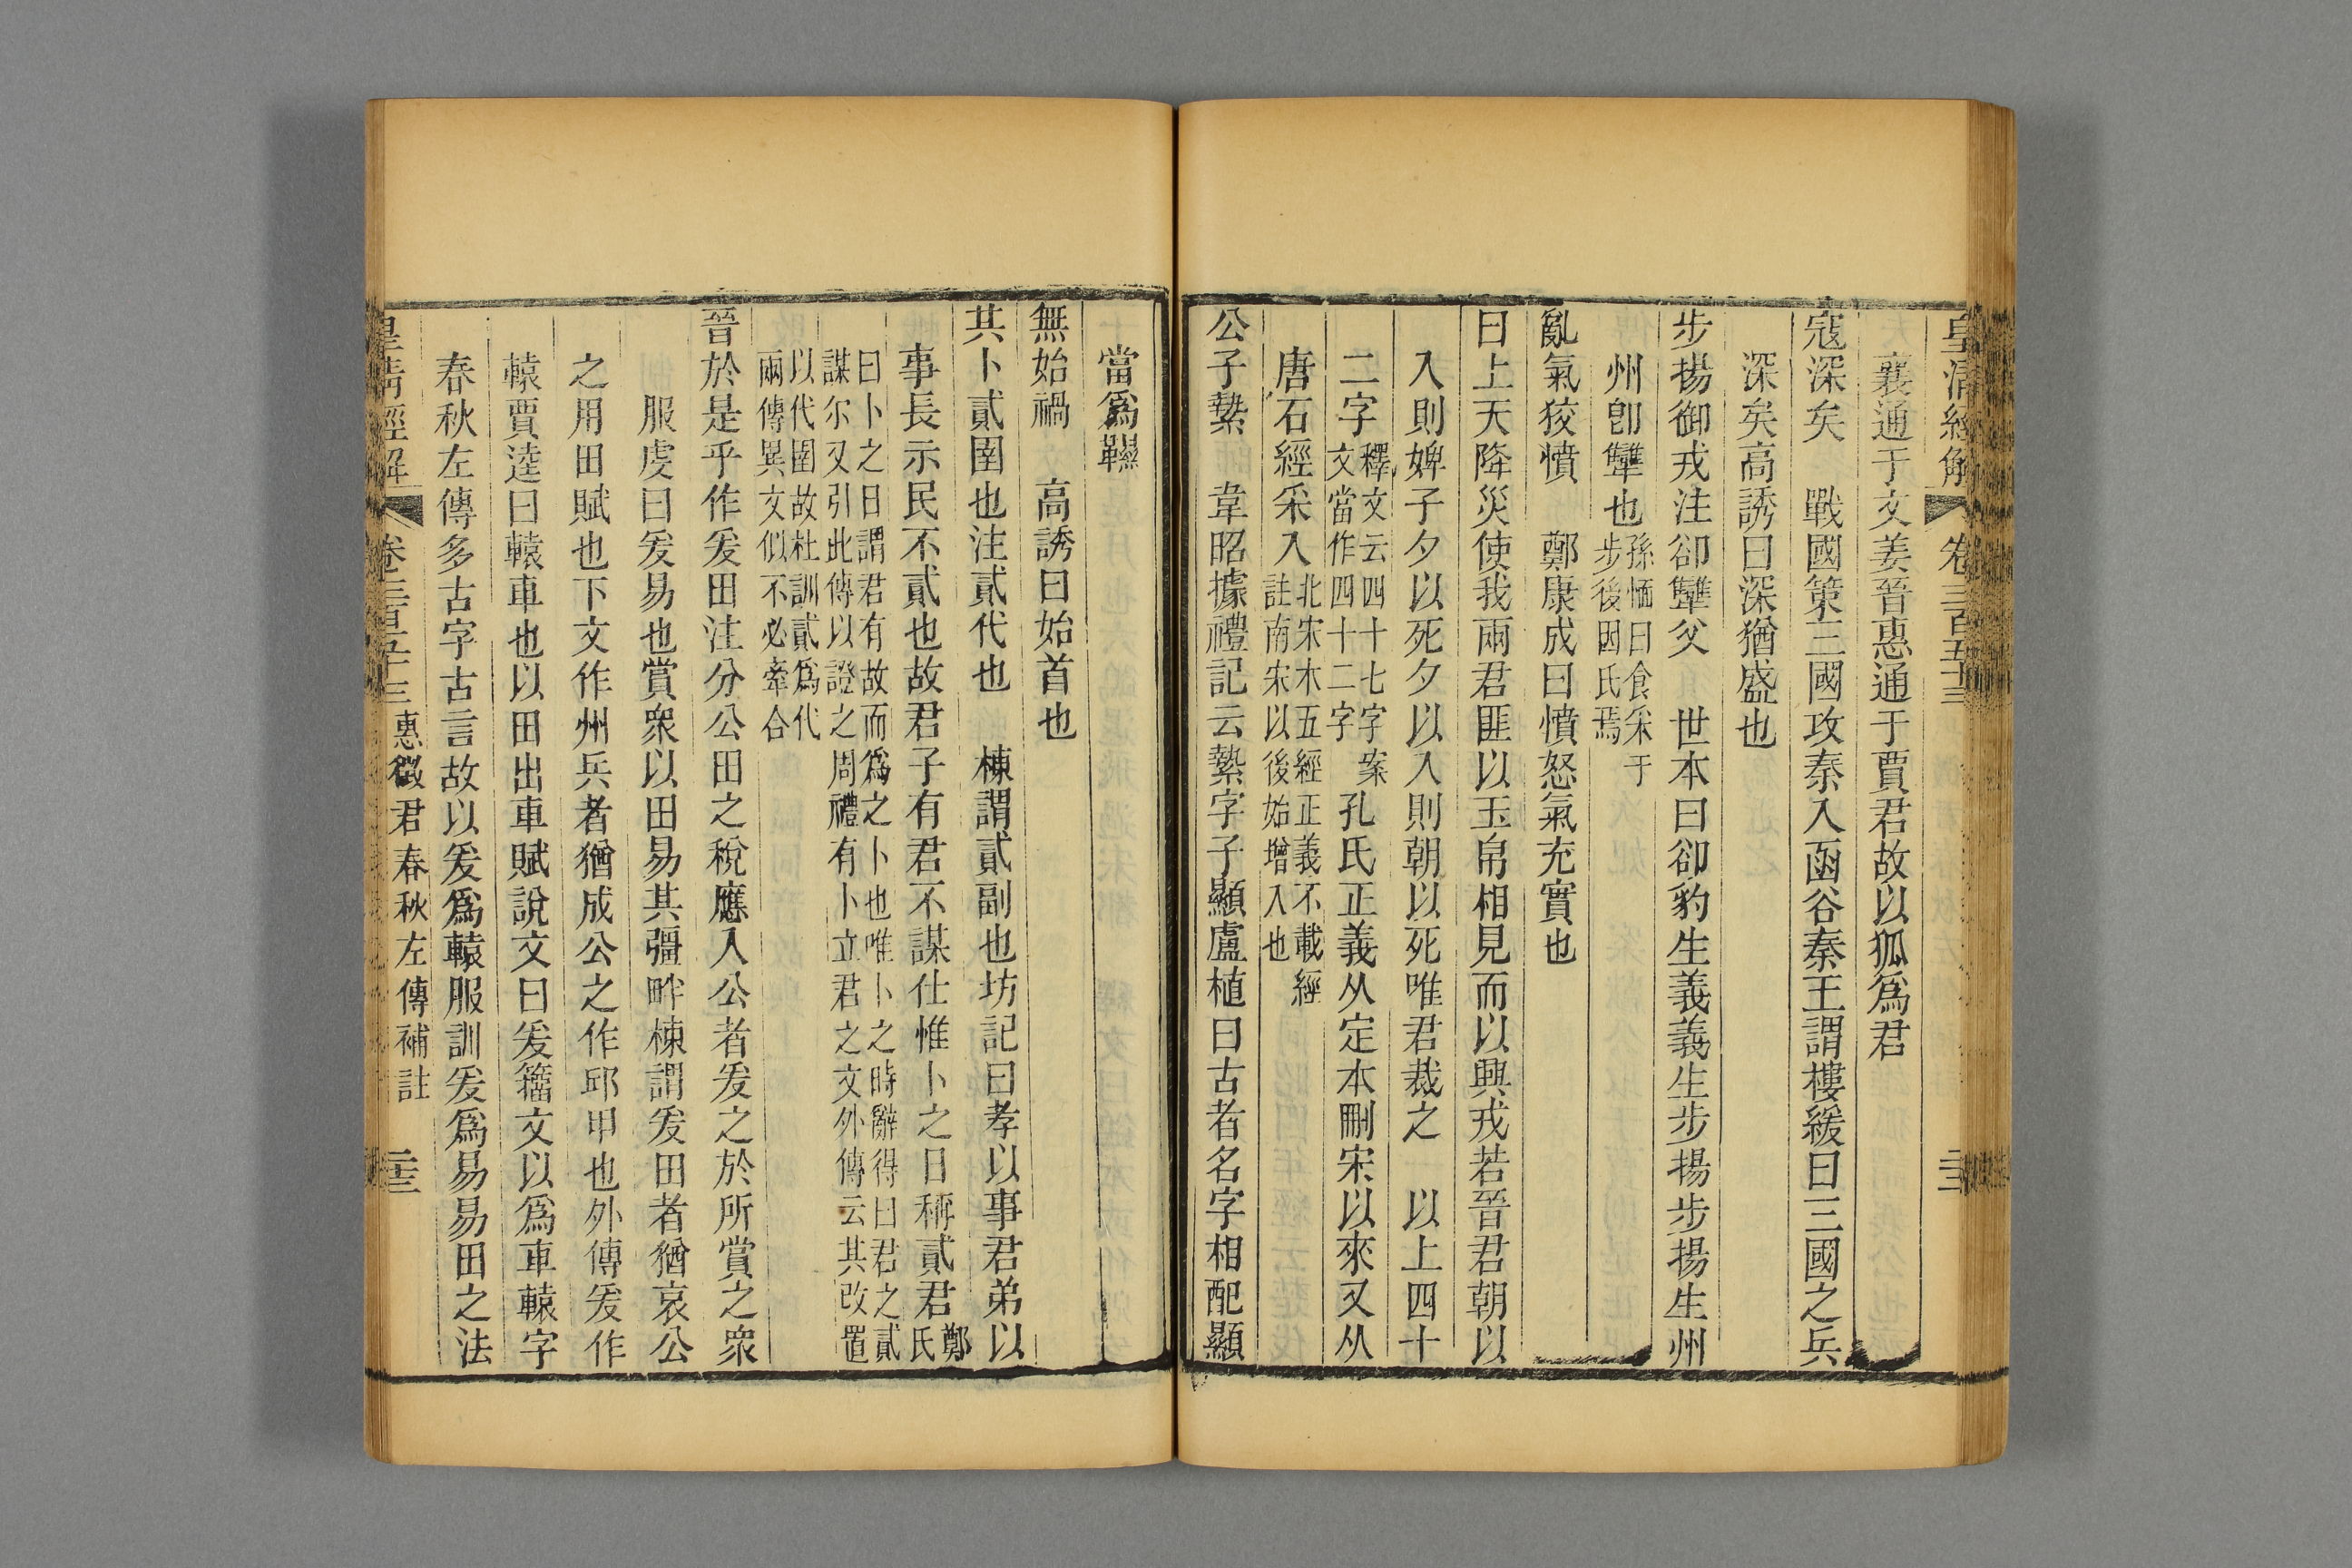 皇清經解 卷三百五十三
襄通于文姜晉惠通于賈君故以狐爲君
寇深矣 戰國策三國攻秦入函谷秦王謂樓緩曰三國之兵
深矣高誘曰深猶盛也
步揚御戎注卻犨父 世本曰卻豹生義義生步揚步揚生州
州卽犨也孫愐曰食采于步後因氏焉
亂氣狡憤 鄭康成曰憤怒氣充實也
曰上天降災使我兩君匪以玉帛相見而以興戎若晉君朝以
入則婢子夕以死夕以入則朝以死唯君裁之 以上四十
二字釋文云四十七字案文當作四十二字孔氏正義从定本刪宋以來又从
唐石經采入北宋木五經正義不載經註南宋以後始增入也
公子縶 韋昭據禮記云縶字子顯盧植曰古者名字相配顯
當爲韅
無始禍 高誘曰始首也
其卜貳圉也注貳代也 棟謂貳副也坊記曰孝以事君弟以
事長示民不貳也故君子有君不謀仕惟卜之日稱貳君鄭氏
曰卜之日謂君有故而爲之卜也唯卜之時辭得曰君之貳
謀尔又引此傳以證之周禮有卜立君之文外傳云其改置
以代圉故杜訓貳爲代
兩傳異文似不必牽合
晉於是乎作爰田注分公田之稅應入公者爰之於所賞之眾
服虔曰爰易也賞眾以田易其疆畔棟謂爰田者猶哀公
之用田賦也下文作州兵者猶成公之作邱甲也外傳爰作
轅賈逵曰轅車也以田出車賦說文曰爰籀文以爲車轅字
春秋左傳多古字古言故以爰爲轅服訓爰爲易易田之法
皇清經解 卷三百五十三 惠徵君春秋左傳補註 二十三